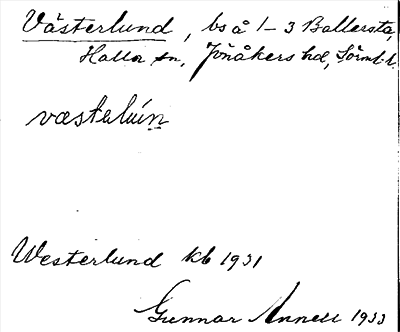 Västerlund, bs å 1-3 Ballersta,
Halla sn, Jönåkers hd, Sörml. l.
væstəluǹn
Westerlund kb 1931
Gunnar Annell 1933